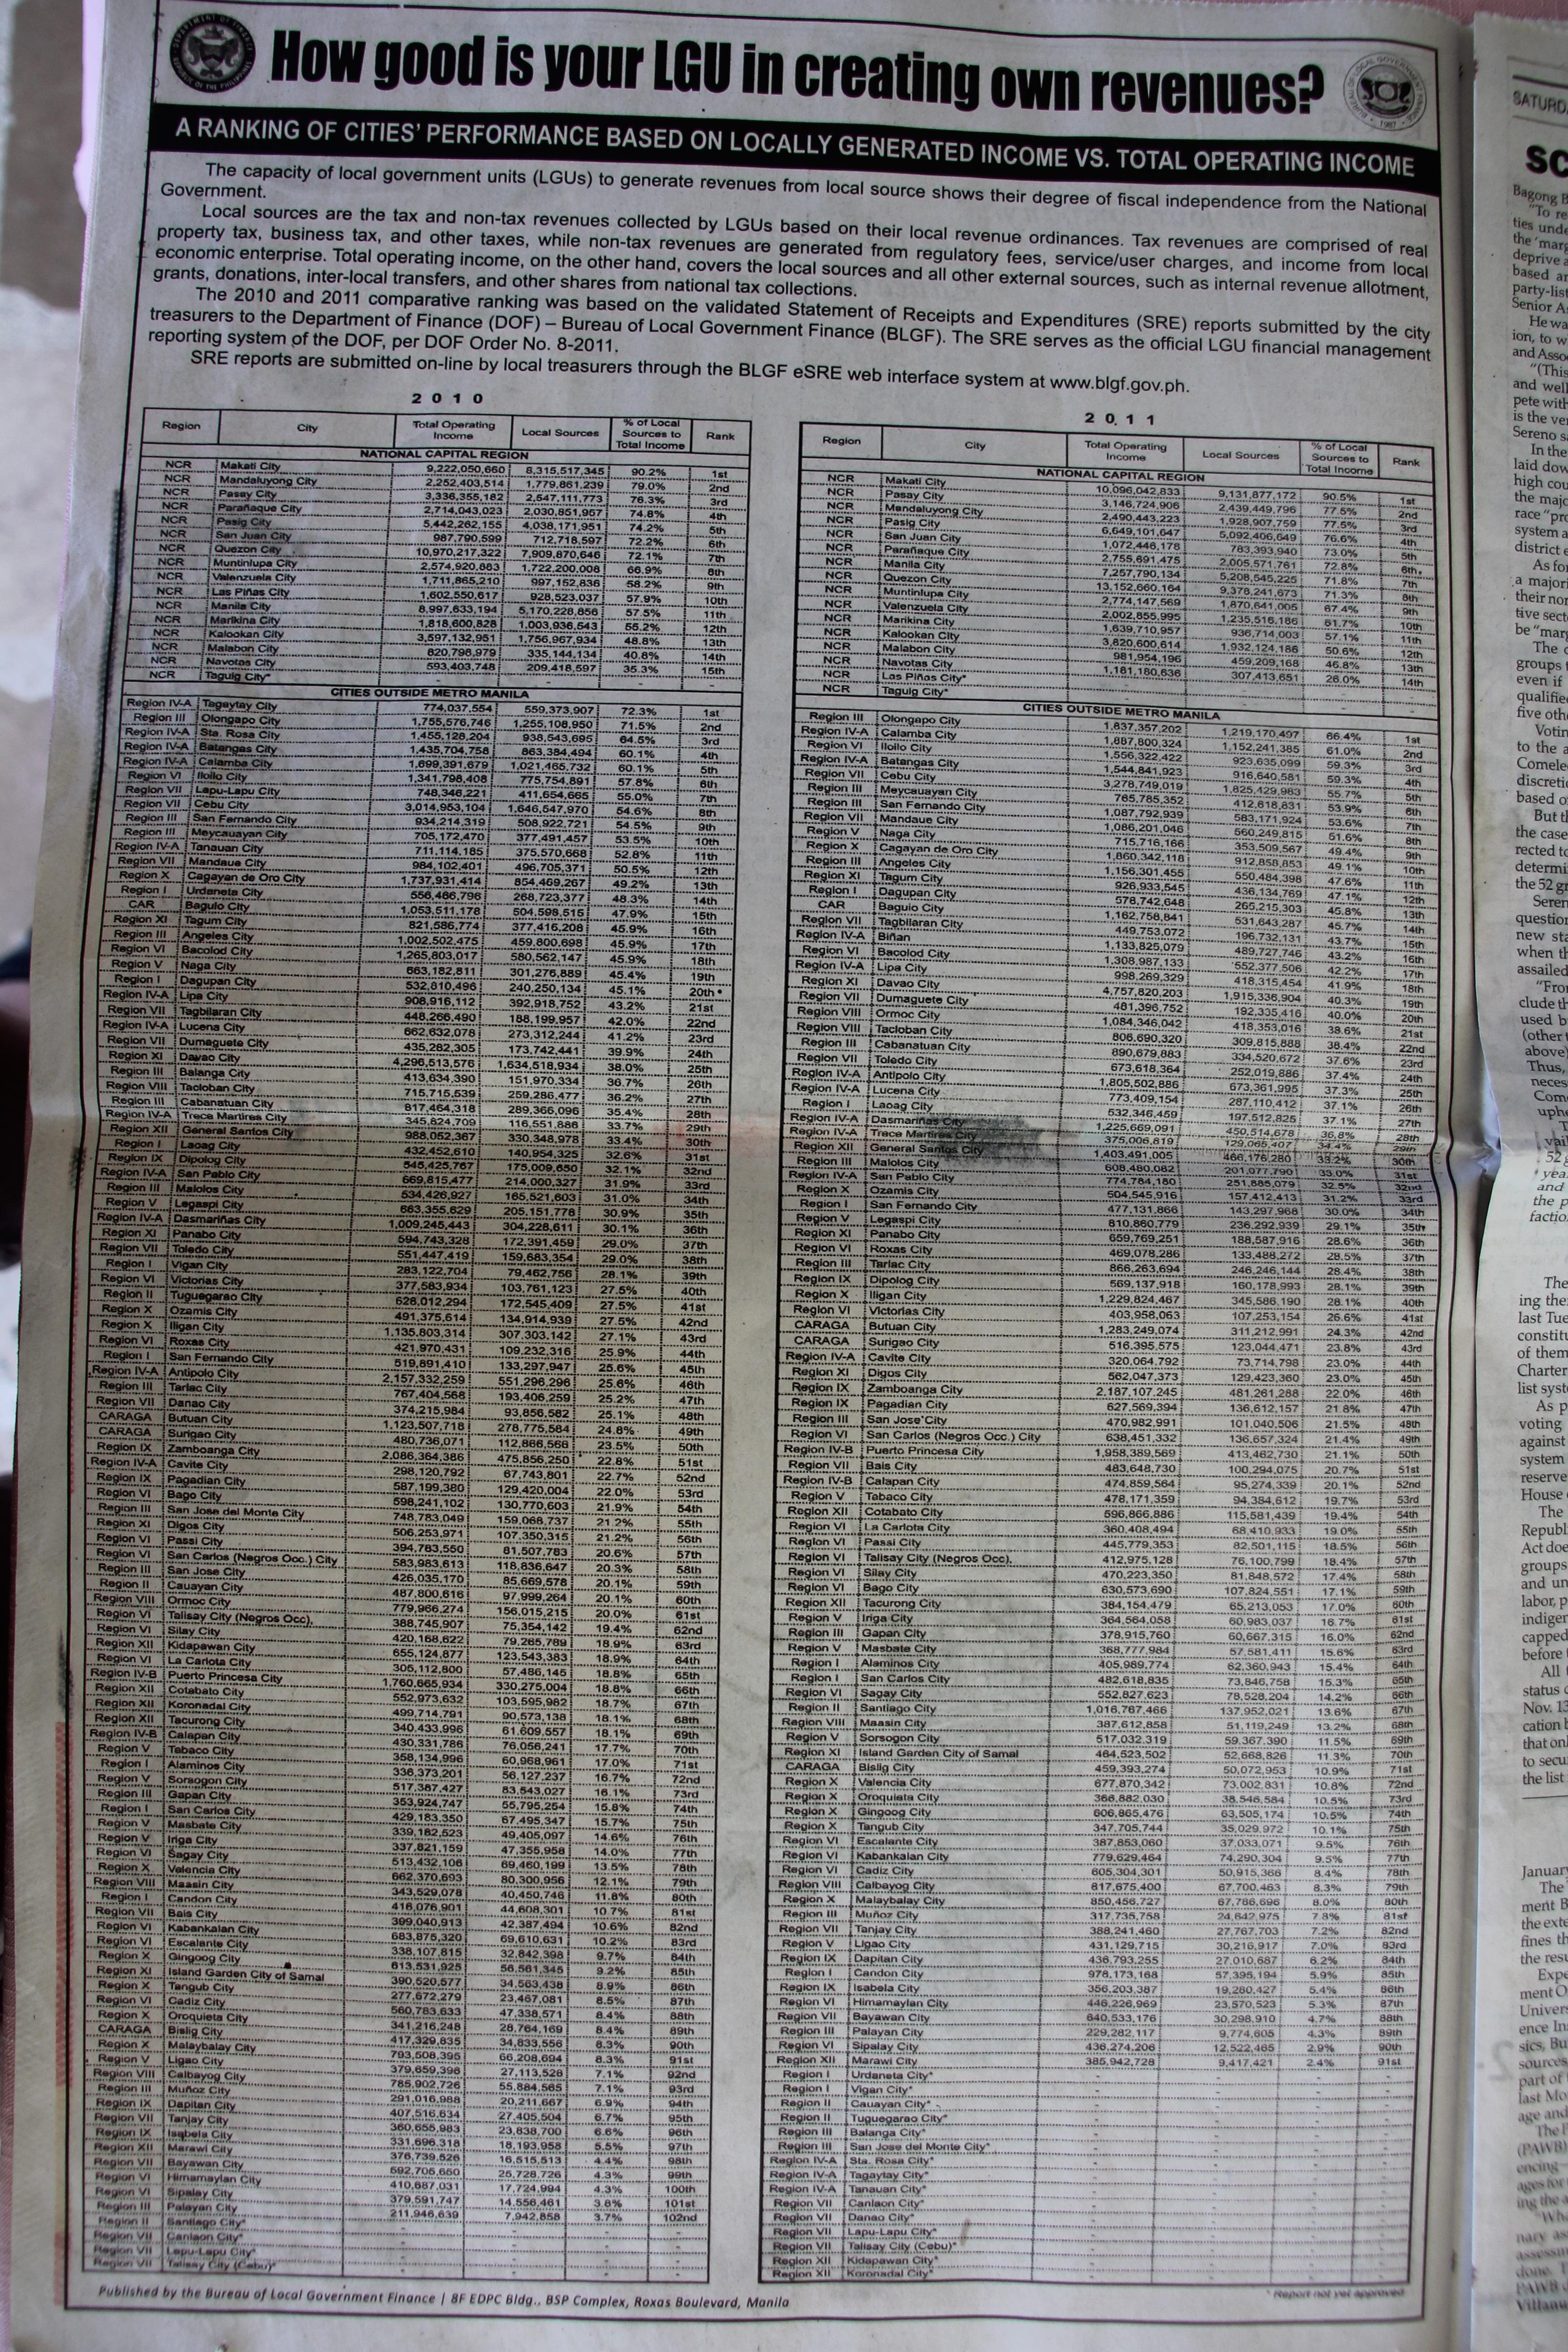 How good is your LGU in creating own revenues?
A RANKING OF CITIES' PERFORMANCE BASED ON LOCALLY GENERATED INCOME VS. TOTAL OPERATING INCOME
The capacity of local government units (LGUs) to generate revenues from local source shows their degree of fiscal independence from the National
Government.
Local sources are the tax and non-tax revenues collected by LGUs based on their local revenue ordinances. Tax revenues are comprised of real
property tax, business tax, and other taxes, while non-tax revenues are generated from regulatory fees, service/user charges, and income from local
economic enterprise. Total operating income, on the other hand, covers the local sources and all other external sources, such as internal revenue allotment,
grants, donations, inter-local transfers, and other shares from national tax collections.
The 2010 and 2011 comparative ranking was based on the validated Statement of Receipts and Expenditures (SRE) reports submitted by the city
treasurers to the Department of Finance (DOF) – Bureau of Local Government Finance (BLGF). The SRE serves as the official LGU financial management
reporting system of the DOF, per DOF Order No. 8-2011.
SRE reports are submitted on-line by local treasurers through the BLGF eSRE web interface system at www.blgf.gov.ph.
2 0 1 0
Region City Total Operating Income Local Sources % of Local Sources to Total Income Rank
NATIONAL CAPITAL REGION
NCR Makati City 9,222,050,660 8,315,517,345 90.2% 1st
NCR Mandaluyong City 2,252,403,514 1,779,861,239 79.0% 2nd
NCR Pasay City 3,336,355,182 2,547,111,773 76.3% 3rd
NCR Parañaque City 2,714,043,023 2,030,851,957 74.8% 4th
NCR Pasig City 5,442,262,155 4,038,171,951 74.2% 5th
NCR San Juan City 987,790,599 712,718,597 72.2% 6th
NCR Quezon City 10,970,217,322 7,909,870,646 72.1% 7th
NCR Muntinlupa City 2,574,920,883 1,722,200,008 66.9% 8th
NCR Valenzuela City 1,711,865,210 997,152,836 58.2% 9th
NCR Las Piñas City 1,602,550,617 928,523,037 57.9% 10th
NCR Manila City 8,997,633,194 5,170,228,856 57.5% 11th
NCR Marikina City 1,818,600,828 1,003,936,543 55.2% 12th
NCR Kalookan City 3,597,132,951 1,756,967,934 48.8% 13th
NCR Malabon City 820,798,979 335,144,134 40.8% 14th
NCR Navotas City 593,403,748 209,418,597 35.3% 15th
NCR Taguig City* - - - -
CITIES OUTSIDE METRO MANILA
Region IV-A Tagaytay City 774,037,554 559,373,907 72.3% 1st
Region III Olongapo City 1,755,576,746 1,255,108,950 71.5% 2nd
Region IV-A Sta. Rosa City 1,455,128,204 938,543,695 64.5% 3rd
Region IV-A Batangas City 1,435,704,758 863,384,494 60.1% 4th
Region IV-A Calamba City 1,699,391,679 1,021,465,732 60.1% 5th
Region VI Iloilo City 1,341,798,408 775,754,891 57.8% 6th
Region VII Lapu-Lapu City 748,346,221 411,654,665 55.0% 7th
Region VII Cebu City 3,014,953,104 1,646,547,970 54.6% 8th
Region III San Fernando City 934,214,319 508,922,721 54.5% 9th
Region III Meycauayan City 705,172,470 377,491,457 53.5% 10th
Region IV-A Tanauan City 711,114,185 375,570,668 52.8% 11th
Region VII Mandaue City 984,102,401 496,705,371 50.5% 12th
Region X Cagayan de Oro City 1,737,931,414 854,469,267 49.2% 13th
Region I Urdaneta City 556,466,796 268,723,377 48.3% 14th
CAR Baguio City 1,053,511,178 504,598,515 47.9% 15th
Region XI Tagum City 821,586,774 377,416,208 45.9% 16th
Region III Angeles City 1,002,502,475 459,800,698 45.9% 17th
Region VI Bacolod City 1,265,803,017 580,562,147 45.9% 18th
Region V Naga City 663,182,811 301,276,889 45.4% 19th
Region I Dagupan City 532,810,496 240,250,134 45.1% 20th
Region IV-A Lipa City 908,916,112 392,918,752 43.2% 21st
Region VII Tagbilaran City 448,266,490 188,199,957 42.0% 22nd
Region IV-A Lucena City 662,632,078 273,312,244 41.2% 23rd
Region VII Dumaguete City 435,282,305 173,742,441 39.9% 24th
Region XI Davao City 4,296,513,576 1,634,518,934 38.0% 25th
Region III Balanga City 413,634,390 151,970,334 36.7% 26th
Region VIII Tacloban City 715,715,539 259,286,477 36.2% 27th
Region III Cabanatuan City 817,464,318 289,366,096 35.4% 28th
Region IV-A Trece Martires City 345,824,709 116,551,886 33.7% 29th
Region XII General Santos City 988,052,367 330,348,978 33.4% 30th
Region I Laoag City 432,452,610 140,954,325 32.6% 31st
Region IX Dipolog City 545,425,767 175,009,650 32.1% 32nd
Region IV-A San Pablo City 669,815,477 214,000,327 31.9% 33rd
Region III Malolos City 534,426,927 165,521,603 31.0% 34th
Region V Legaspi City 663,355,629 205,151,778 30.9% 35th
Region IV-A Dasmariñas City 1,009,245,443 304,228,611 30.1% 36th
Region XI Panabo City 594,743,328 172,391,459 29.0% 37th
Region VII Toledo City 551,447,419 159,683,354 29.0% 38th
Region I Vigan City 283,122,704 79,462,756 28.1% 39th
Region VI Victorias City 377,583,934 103,761,123 27.5% 40th
Region II Tuguegarao City 628,012,294 172,545,409 27.5% 41st
Region X Ozamis City 491,375,614 134,914,939 27.5% 42nd
Region X Iligan City 1,135,803,314 307,303,142 27.1% 43rd
Region VI Roxas City 421,970,431 109,232,316 25.9% 44th
Region I San Fernando City 519,891,410 133,297,947 25.6% 45th
Region IV-A Antipolo City 2,157,332,259 551,296,296 25.6% 46th
Region III Tarlac City 767,404,568 193,406,259 25.2% 47th
Region VII Danao City 374,215,984 93,856,582 25.1% 48th
CARAGA Butuan City 1,123,507,718 278,775,564 24.8% 49th
CARAGA Surigao City 480,736,071 112,866,566 23.5% 50th
Region IX Zamboanga City 2,086,364,386 475,856,250 22.8% 51st
Region IV-A Cavite City 298,120,792 67,743,801 22.7% 52nd
Region IX Pagadian City 587,199,380 129,420,004 22.0% 53rd
Region VI Bago City 598,241,102 130,770,603 21.9% 54th
Region III San Jose del Monte City 748,783,049 159,068,737 21.2% 55th
Region XI Digos City 506,253,971 107,350,315 21.2% 56th
Region VI Passi City 394,783,550 81,507,783 20.6% 57th
Region VI San Carlos (Negros Occ.) City 583,983,613 118,836,647 20.3% 58th
Region III San Jose City 426,035,170 85,669,578 20.1% 59th
Region II Cauayan City 487,800,616 97,999,264 20.1% 60th
Region VIII Ormoc City 779,966,274 156,015,215 20.0% 61st
Region VI Talisay City (Negros Occ). 388,745,907 75,354,142 19.4% 62nd
Region VI Silay City 420,168,622 79,265,789 18.9% 63rd
Region XII Kidapawan City 655,124,877 123,543,383 18.9% 64th
Region VI La Carlota City 305,112,800 57,486,145 18.8% 65th
Region IV-B Puerto Princesa City 1,760,665,934 330,275,004 18.8% 66th
Region XII Cotabato City 552,973,632 103,595,982 18.7% 67th
Region XII Koronadal City 499,714,791 90,573,138 18.1% 68th
Region XII Tacurong City 340,433,996 61,609,557 18.1% 69th
Region IV-B Calapan City 430,331,786 76,056,241 17.7% 70th
Region V Tabaco City 358,134,996 60,968,961 17.0% 71st
Region I Alaminos City 336,373,201 56,127,237 16.7% 72nd
Region V Sorsogon City 517,387,427 83,543,027 16.1% 73rd
Region III Gapan City 353,924,747 55,795,254 15.8% 74th
Region I San Carlos City 429,183,350 67,495,347 15.7% 75th
Region V Masbate City 339,182,523 49,405,097 14.6% 76th
Region V Iriga City 337,821,159 47,355,958 14.0% 77th
Region VI Sagay City 513,432,106 69,460,199 13.5% 78th
Region X Valencia City 662,370,693 80,300,956 12.1% 79th
Region VIII Maasin City 343,529,078 40,450,746 11.8% 80th
Region I Candon City 416,076,901 44,608,301 10.7% 81st
Region VII Bais City 399,040,913 42,387,494 10.6% 82nd
Region VI Kabankalan City 683,875,320 69,610,631 10.2% 83rd
Region VI Escalante City 338,107,815 32,842,398 9.7% 84th
Region X Gingoog City 613,531,925 56,561,345 9.2% 85th
Region XI Island Garden City of Samal 390,520,577 34,563,438 8.9% 86th
Region X Tangub City 277,672,279 23,467,081 8.5% 87th
Region VI Cadiz City 560,783,633 47,338,571 8.4% 88th
Region X Oroquieta City 341,216,248 28,764,169 8.4% 89th
CARAGA Bislig City 417,329,835 34,633,556 8.3% 90th
Region X Malaybalay City 793,508,395 66,208,694 8.3% 91st
Region V Ligao City 379,659,398 27,113,528 7.1% 92nd
Region VIII Calbayog City 785,902,726 55,884,565 7.1% 93rd
Region III Muñoz City 291,016,988 20,211,667 6.9% 94th
Region IX Dapitan City 407,516,634 27,405,504 6.7% 95th
Region VII Tanjay City 360,655,983 23,838,700 6.6% 96th
Region IX Isabela City 331,696,318 18,193,958 5.5% 97th
Region XII Marawi City 376,739,526 16,515,513 4.4% 98th
Region VII Bayawan City 592,705,650 25,728,726 4.3% 99th
Region VI Himamaylan City 410,687,031 17,724,994 4.3% 100th
Region VI Sipalay City 379,591,747 14,556,461 3.8% 101st
Region III Palayan City 211,946,639 7,942,858 3.7% 102nd
Region II Santiago City* - - - -
Region VII Canlaon City* - - - -
Region VII Lapu-Lapu City* - - - -
Region VII Talisay City (Cebu)* - - - -
2 0 1 1
Region City Total Operating Income Local Sources % of Local Sources to Total Income Rank
NATIONAL CAPITAL REGION
NCR Makati City 10,096,042,833 9,131,877,172 90.5% 1st
NCR Pasay City 3,146,724,906 2,439,449,796 77.5% 2nd
NCR Mandaluyong City 2,490,443,223 1,928,907,759 77.5% 3rd
NCR Pasig City 6,649,101,647 5,092,406,649 76.6% 4th
NCR San Juan City 1,072,446,178 783,393,940 73.0% 5th
NCR Parañaque City 2,755,691,475 2,005,571,761 72.8% 6th
NCR Manila City 7,257,790,134 5,208,545,225 71.8% 7th
NCR Quezon City 13,152,660,164 9,378,241,673 71.3% 8th
NCR Muntinlupa City 2,774,147,569 1,870,641,005 67.4% 9th
NCR Valenzuela City 2,002,655,995 1,235,516,186 61.7% 10th
NCR Marikina City 1,639,710,957 936,714,003 57.1% 11th
NCR Kalookan City 3,820,600,614 1,932,124,186 50.6% 12th
NCR Malabon City 981,954,196 459,209,168 46.8% 13th
NCR Navotas City 1,181,180,636 307,413,651 26.0% 14th
NCR Las Piñas City* - - - -
NCR Taguig City* - - - -
CITIES OUTSIDE METRO MANILA
Region III Olongapo City 1,837,357,202 1,219,170,497 66.4% 1st
Region IV-A Calamba City 1,887,800,324 1,152,241,385 61.0% 2nd
Region VI Iloilo City 1,556,322,422 923,635,099 59.3% 3rd
Region IV-A Batangas City 1,544,841,923 916,640,581 59.3% 4th
Region VII Cebu City 3,278,749,019 1,825,429,983 55.7% 5th
Region III Meycauayan City 765,785,352 412,618,831 53.9% 6th
Region III San Fernando City 1,087,792,939 583,171,924 53.6% 7th
Region VII Mandaue City 1,086,201,046 560,249,815 51.6% 8th
Region V Naga City 715,716,166 353,509,567 49.4% 9th
Region X Cagayan de Oro City 1,860,342,118 912,858,853 49.1% 10th
Region III Angeles City 1,156,301,455 550,484,398 47.6% 11th
Region XI Tagum City 926,933,545 436,134,769 47.1% 12th
Region I Dagupan City 578,742,648 265,215,303 45.8% 13th
CAR Baguio City 1,162,758,841 531,643,287 45.7% 14th
Region VII Tagbilaran City 449,753,072 196,732,131 43.7% 15th
Region IV-A Biñan 1,133,825,079 489,727,746 43.2% 16th
Region VI Bacolod City 1,308,987,133 552,377,506 42.2% 17th
Region IV-A Lipa City 998,269,329 418,315,454 41.9% 18th
Region XI Davao City 4,757,820,203 1,915,336,904 40.3% 19th
Region VII Dumaguete City 481,396,752 192,335,416 40.0% 20th
Region VIII Ormoc City 1,084,346,042 418,353,016 38.6% 21st
Region VIII Tacloban City 806,690,320 309,815,888 38.4% 22nd
Region III Cabanatuan City 890,679,883 334,520,672 37.6% 23rd
Region VII Toledo City 673,618,364 252,019,886 37.4% 24th
Region IV-A Antipolo City 1,805,502,886 673,361,995 37.3% 25th
Region IV-A Lucena City 773,409,154 287,110,412 37.1% 26th
Region I Laoag City 532,346,459 197,512,825 37.1% 27th
Region IV-A Dasmariñas City 1,225,669,091 450,514,678 36.8% 28th
Region IV-A Trece Martires City 375,006,819 129,065,407 34.4% 29th
Region XII General Santos City 1,403,491,005 466,176,280 33.2% 30th
Region III Malolos City 608,480,082 201,077,790 33.0% 31st
Region IV-A San Pablo City 774,784,180 251,865,079 32.5% 32nd
Region X Ozamis City 504,545,916 157,412,413 31.2% 33rd
Region I San Fernando City 477,131,866 143,297,968 30.0% 34th
Region V Legaspi City 810,860,779 236,292,939 29.1% 35th
Region XI Panabo City 659,769,251 188,587,916 28.6% 36th
Region VI Roxas City 469,078,286 133,488,272 28.5% 37th
Region III Tarlac City 866,263,694 246,246,144 28.4% 38th
Region IX Dipolog City 569,137,918 160,178,993 28.1% 39th
Region X Iligan City 1,229,824,467 345,586,190 28.1% 40th
Region VI Victorias City 403,958,063 107,253,154 26.6% 41st
CARAGA Butuan City 1,283,249,074 311,212,991 24.3% 42nd
CARAGA Surigao City 516,395,575 123,044,471 23.8% 43rd
Region IV-A Cavite City 320,064,792 73,714,798 23.0% 44th
Region XI Digos City 562,047,373 129,423,360 23.0% 45th
Region IX Zamboanga City 2,187,107,245 481,261,288 22.0% 46th
Region IX Pagadian City 627,569,394 136,612,157 21.8% 47th
Region III San Jose City 470,982,991 101,040,506 21.5% 48th
Region VI San Carlos (Negros Occ.) City 638,451,332 136,657,324 21.4% 49th
Region IV-B Puerto Princesa City 1,958,389,569 413,462,730 21.1% 50th
Region VII Bais City 483,648,730 100,294,075 20.7% 51st
Region IV-B Calapan City 474,859,564 95,274,339 20.1% 52nd
Region V Tabaco City 478,171,359 94,384,612 19.7% 53rd
Region XII Cotabato City 596,866,886 115,581,439 19.4% 54th
Region VI La Carlota City 360,408,494 68,410,933 19.0% 55th
Region VI Passi City 445,779,353 82,501,115 18.5% 56th
Region VI Talisay City (Negros Occ). 412,975,128 76,100,799 18.4% 57th
Region VI Silay City 470,223,350 81,848,572 17.4% 58th
Region VI Bago City 630,573,690 107,824,551 17.1% 59th
Region XII Tacurong City 384,154,479 65,213,053 17.0% 60th
Region V Iriga City 364,564,058 60,983,037 16.7% 61st
Region III Gapan City 378,915,760 60,667,315 16.0% 62nd
Region V Masbate City 368,777,984 57,581,411 15.6% 63rd
Region I Alaminos City 405,989,774 62,360,943 15.4% 64th
Region I San Carlos City 482,618,835 73,846,758 15.3% 65th
Region VI Sagay City 552,827,623 78,528,204 14.2% 66th
Region II Santiago City 1,016,767,466 137,952,021 13.6% 67th
Region VIII Maasin City 387,612,858 51,119,249 13.2% 68th
Region V Sorsogon City 517,032,319 59,367,390 11.5% 69th
Region XI Island Garden City of Samal 464,523,502 52,668,826 11.3% 70th
CARAGA Bislig City 459,393,274 50,072,953 10.9% 71st
Region X Valencia City 677,870,342 73,002,831 10.8% 72nd
Region X Oroquieta City 366,882,030 38,546,584 10.5% 73rd
Region X Gingoog City 606,865,476 63,505,174 10.5% 74th
Region X Tangub City 347,705,744 35,029,972 10.1% 75th
Region VI Escalante City 387,853,060 37,033,071 9.5% 76th
Region VI Kabankalan City 779,629,464 74,290,304 9.5% 77th
Region VI Cadiz City 605,304,301 50,915,366 8.4% 78th
Region VIII Calbayog City 817,675,400 67,700,463 8.3% 79th
Region X Malaybalay City 850,456,727 67,786,696 8.0% 80th
Region III Muñoz City 317,735,758 24,642,975 7.8% 81st
Region VII Tanjay City 388,241,460 27,767,703 7.2% 82nd
Region V Ligao City 431,129,715 30,216,917 7.0% 83rd
Region IX Dapitan City 436,793,255 27,010,687 6.2% 84th
Region I Candon City 976,173,168 57,395,194 5.9% 85th
Region IX Isabela City 356,203,387 19,280,427 5.4% 86th
Region VI Himamaylan City 446,226,969 23,570,523 5.3% 87th
Region VII Bayawan City 640,533,176 30,298,910 4.7% 88th
Region III Palayan City 229,282,117 9,774,605 4.3% 89th
Region VI Sipalay City 436,274,206 12,522,465 2.9% 90th
Region XII Marawi City 385,942,728 9,417,421 2.4% 91st
Region I Urdaneta City* - - - -
Region I Vigan City* - - - -
Region II Cauayan City* - - - -
Region II Tuguegarao City* - - - -
Region III Balanga City* - - - -
Region III San Jose del Monte City* - - - -
Region IV-A Sta. Rosa City* - - - -
Region IV-A Tagaytay City* - - - -
Region IV-A Tanauan City* - - - -
Region VII Canlaon City* - - - -
Region VII Danao City* - - - -
Region VII Lapu-Lapu City* - - - -
Region VII Talisay City (Cebu)* - - - -
Region XII Kidapawan City* - - - -
Region XII Koronadal City* - - - -
Published by the Bureau of Local Government Finance | 8F EDPC Bldg., BSP Complex, Roxas Boulevard, Manila
* Report not yet approved